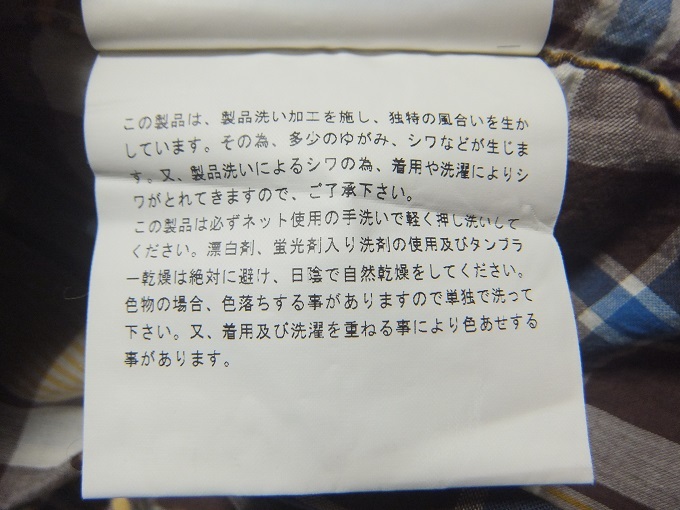 この製品は、製品洗い加工を施し、独特の風合いを生か
しています。その為、多少のゆがみ、シワなどが生じま
す。又、製品洗いによるシワの為、着用や洗濯によりシ
ワがとれてきますので、ご了承下さい。
この製品は必ずネット使用の手洗いで軽く押し洗いして
ください。漂白剤、蛍光剤入り洗剤の使用及びタンブラ
ー乾燥は絶対に避け、日陰で自然乾燥をしてください。
色物の場合、色落ちする事がありますので単独で洗って
下さい。又、着用及び洗濯を重ねる事により色あせする
事があります。